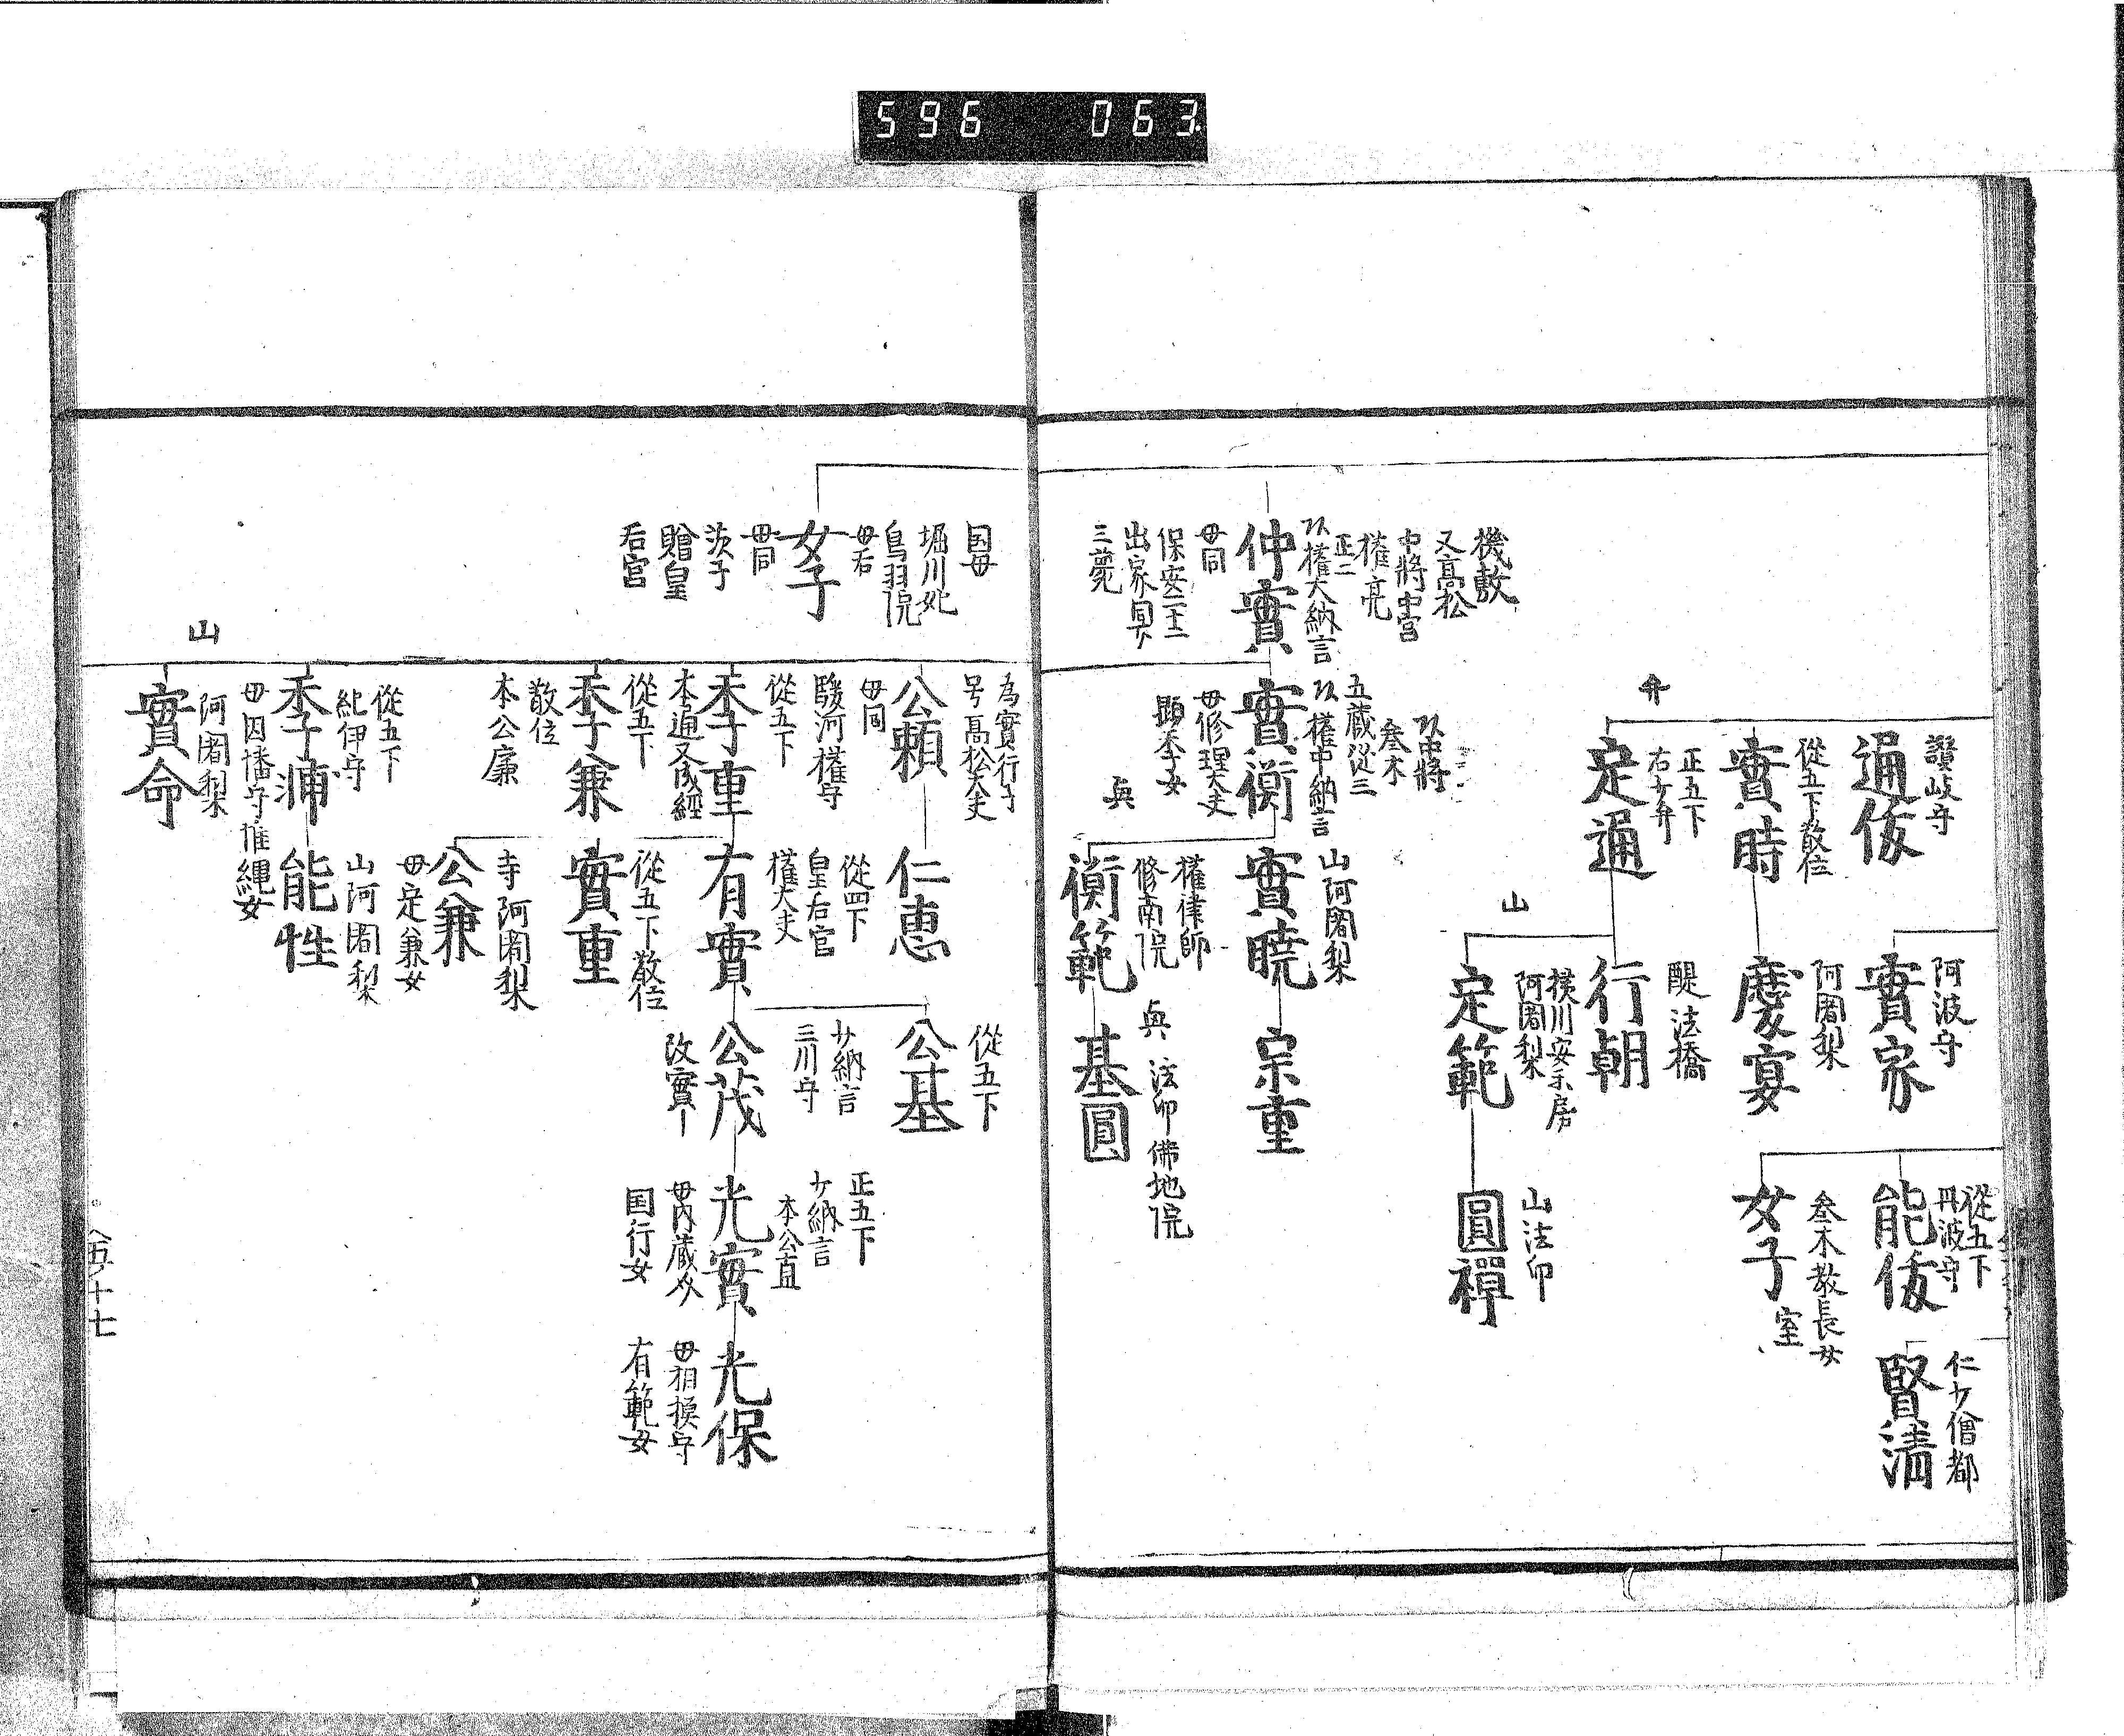 596 063
讃岐守
通俊
從五下散位
實時
弁
正五下
右少弁
定通
阿波守
實家
阿闍梨
慶宴
醍法橋
行朝
山
横川安禾房
阿闍梨
定範
從五下
丹波守
能俊
叅木教長女
室
女子
山法印
圓禪
仁少僧都
賢清
機敷
又高松
中將中宮
權亮
正二
權大納言
仲實
母同
保安二十二
出家同
三薨
中將
叅木
五蔵從三
權中納言
實衡
母修理大夫
顕季女
山阿闍梨
實暁
宗重
興
權律師
修南院
衡範
興
法印佛地院
基圓
国母
堀川妃
鳥羽院
母后
女子
母同
茨子
贈皇
后宮
為實行子
号高松大夫
公頼
母同
駿河權守
從五下
季重
本通又成經
從五下
季兼
散位
本公廉
從五下
紀伊守
季浦
母因幡守惟縄女
山
阿闍梨
實命
仁恵
從四下
皇后宮
權大夫
有實
從五下散位
實重
寺阿闍梨
公兼
母定兼女
山阿闍梨
能性
從五下
公基
少納言
三川守
公茂
改實一
正五下
少納言
本公直
光實
母内蔵久
国行女
光保
母相摸守
有範女
五十七